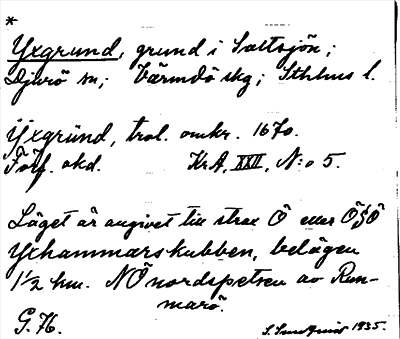 *
Yxgrund, grund i Saltsjön;
Djurö sn; Värmdö skg; Sthlms l.
Ÿxgründ, trol. omkr. 1670.
Förf. okd. KrA, XXII, N:o 5.
Läget är angivet till strax Ö eller ÖSÖ
Yxhammarskubben, belägen
1½ km. NÖ nordspetsen av Run-
marö.
G. H. S. Sundqvist 1935.